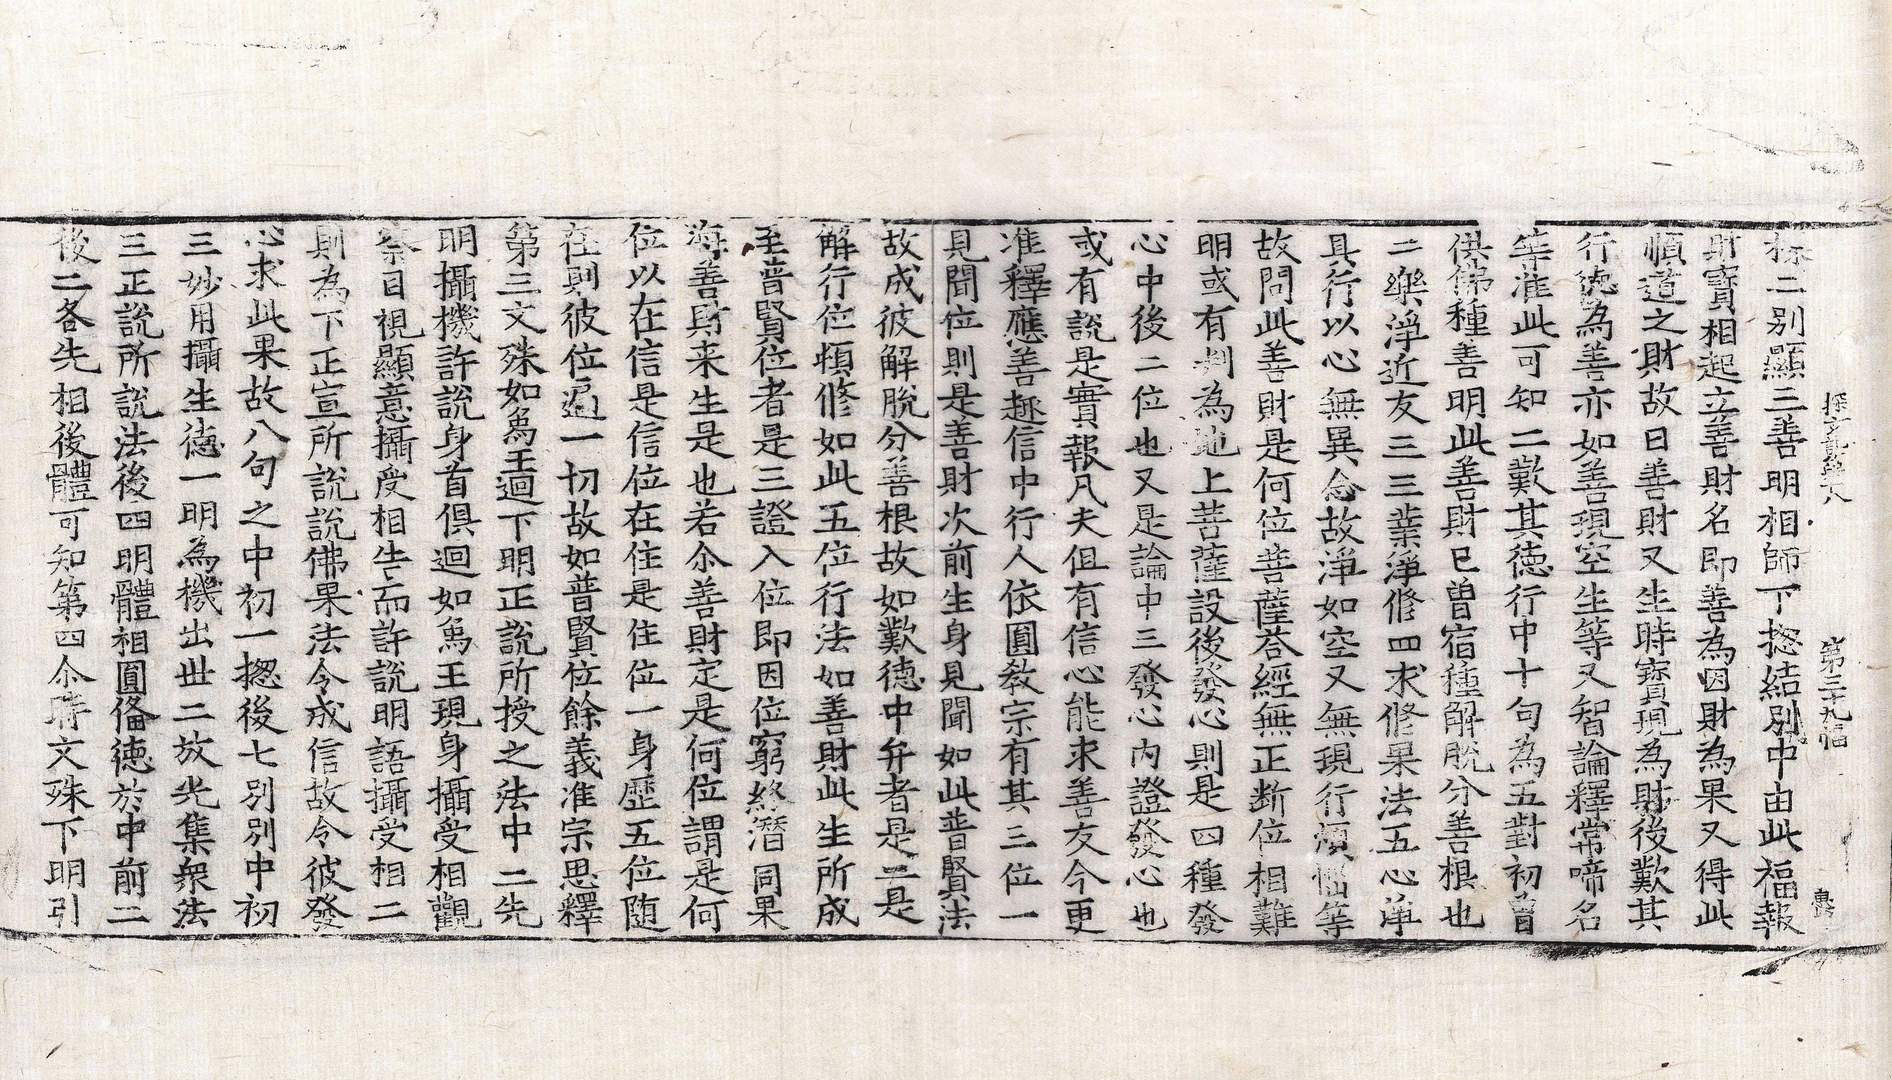 探玄記第十八 第三十九幅
標二別顯三善明相師下揔結別中由此福報
財寶相起立善財名即善為因財為果又得此
順道之財故曰善財又生時寶現為財後歎其
行徳為善亦如善現空生等又智論釋常啼名
等准此可知二歎其徳行中十句為五對初曾
供佛種善明此善財已曾宿種解脫分善根也
二樂淨近友三三業淨修四求修果法五心淨
具行以心無異念故淨如空又無現行煩惱等
故問此善財是何位菩薩荅經無正断位相難
明或有判為地上菩薩設後發心則是四種發
心中後二位也又是論中三發心內證發心也
或有說是實報凡夫但有信心能求善友今更
准釋應善趣信中行人依圓教宗有其三位一
見聞位則是善財次前生身見聞如此普賢法
故成彼解脫分善根故如歎德中弁者是二是
解行位頓修如此五位行法如善財此生所成
至普賢位者是三證入位即因位窮終潛同果
海善財来生是也若尒善財定是何位謂是何
位以在信是信位在住是住位一身歷五位随
在則彼位遍一切故如普賢位餘義准宗思釋
第三文殊如為王迴下明正說所授之法中二先
明攝機許說身首俱迴如為王現身攝受相觀
察目視顯意攝受相告而許說明語攝受相二
則為下正宣所說說佛果法令成信故令彼發
心求此果故八句之中初一揔後七別別中初
三妙用攝生徳一明為機出世二放光集衆法
三正說所說法後四明體相圓俻徳於中前二
後二各先相後體可知第四尒時文殊下明引